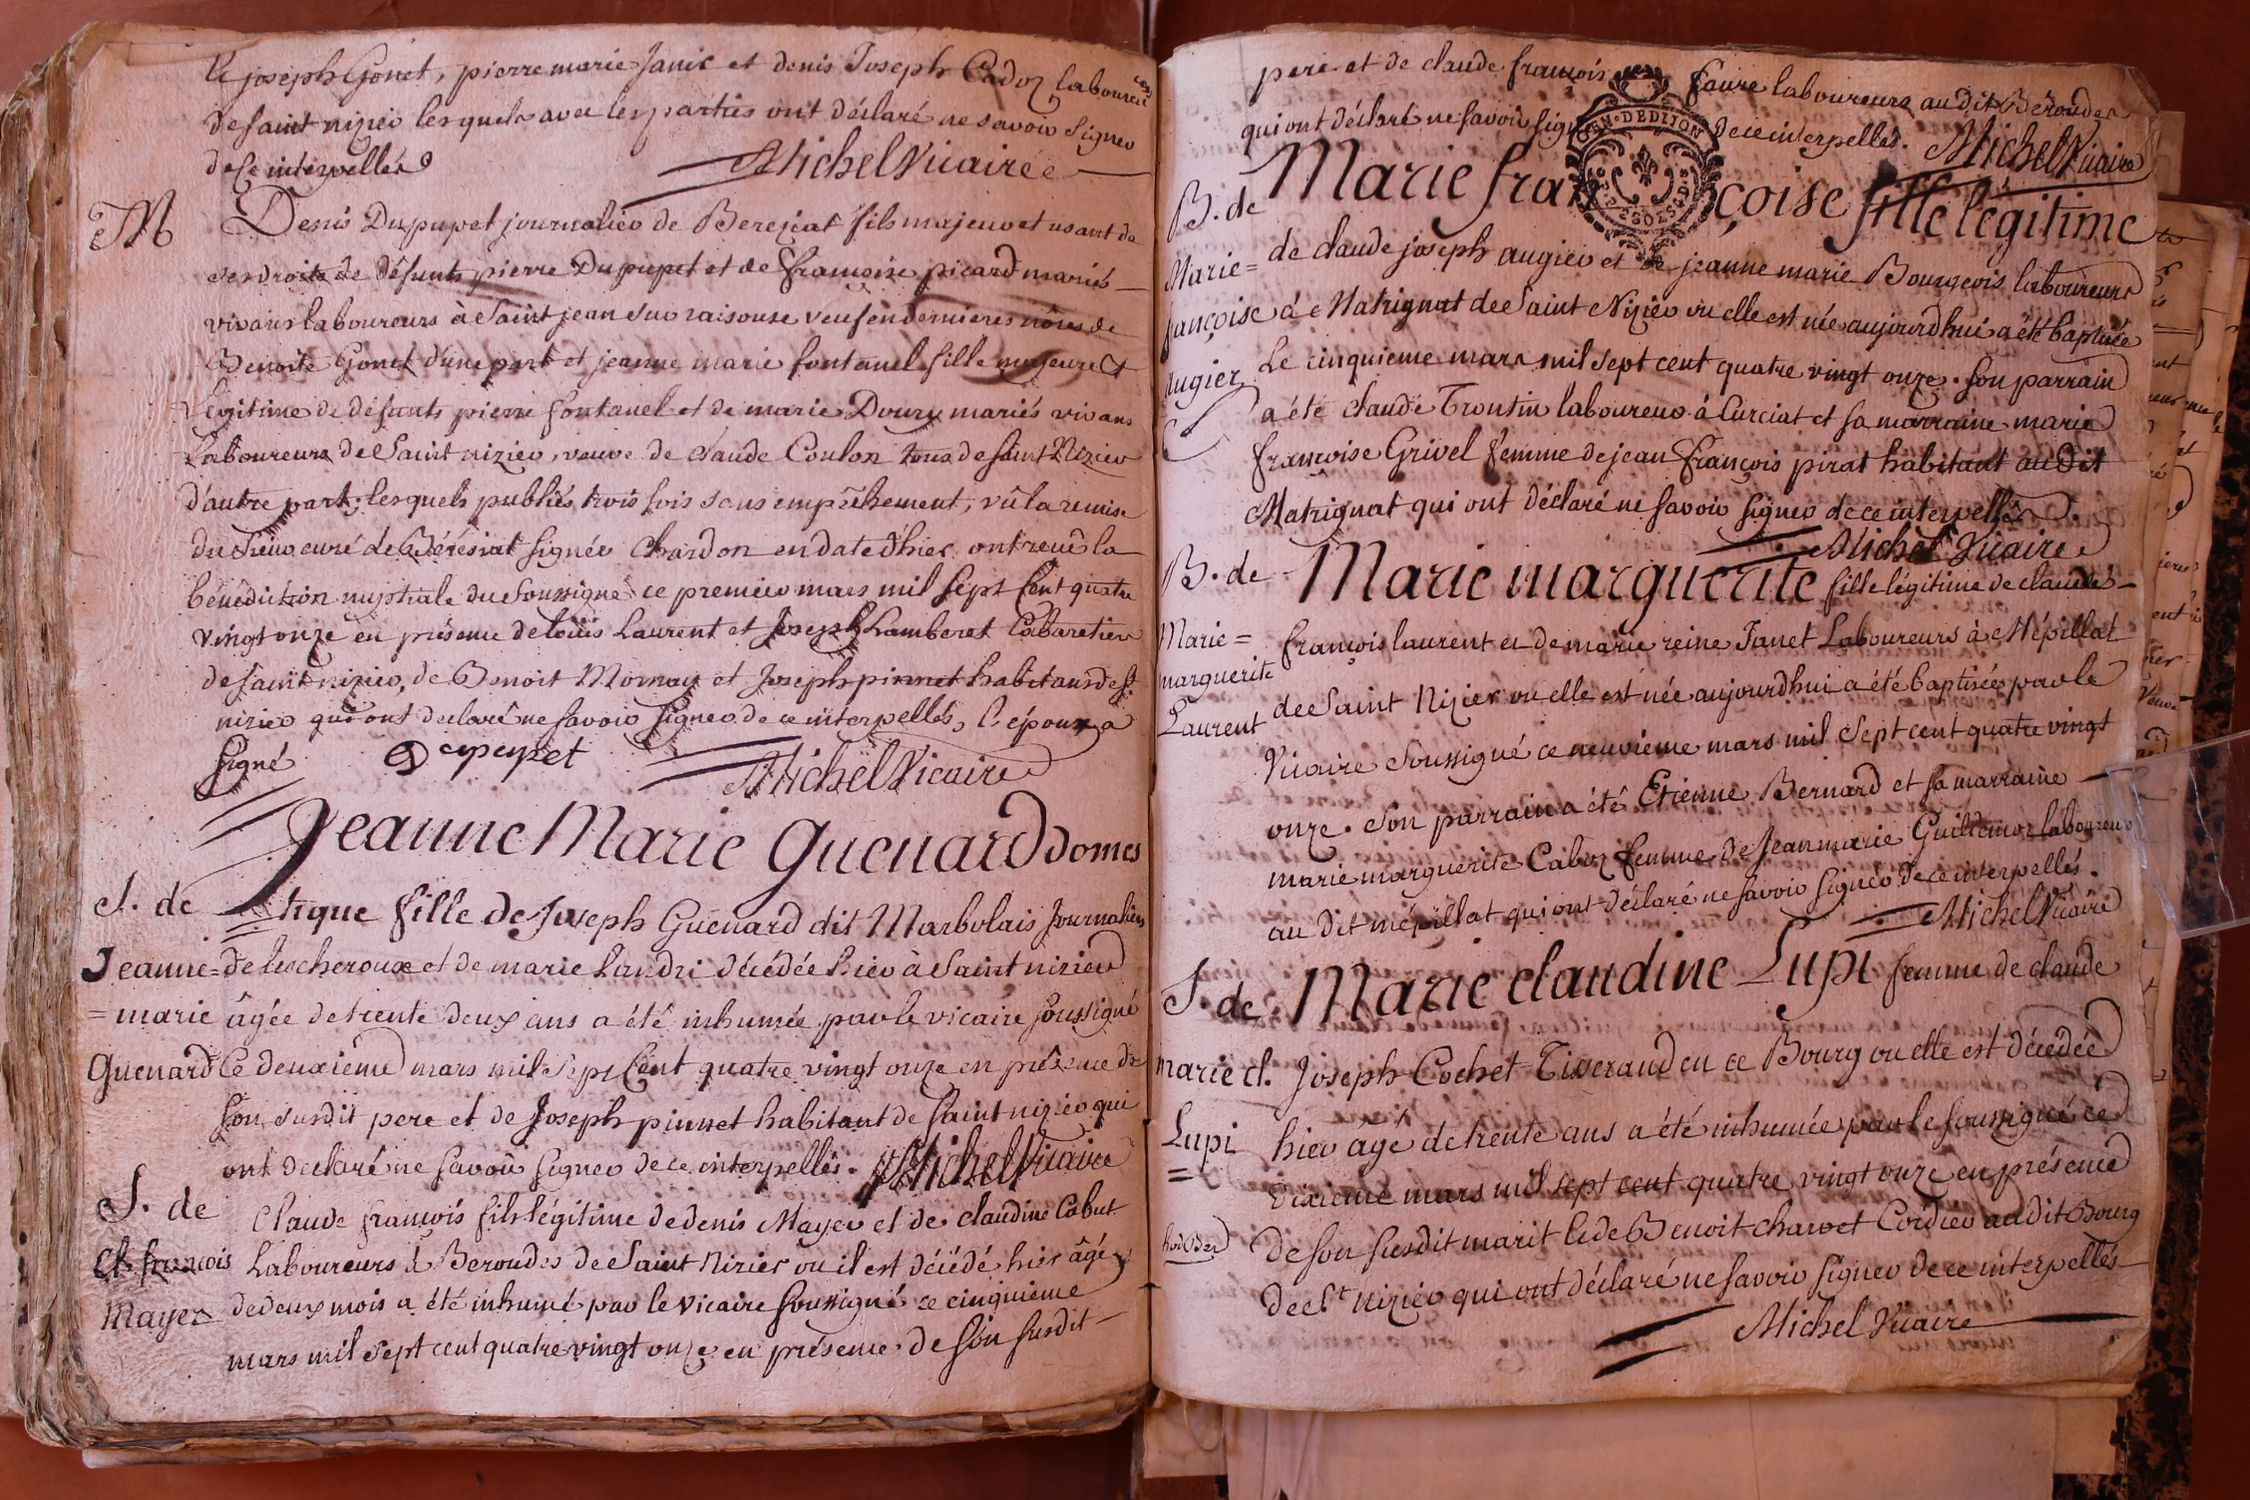 de joseph Gonet, pierre marie Janic et denis Joseph Cadoz laboureurs
de saint nizier lesquels avec les parties ont déclaré ne savoir signer
de ce interpellés
Michel Vicaire
M
Denis Dupupet journalier de Bereziat fils majeur et usant de
ses droits de défunts pierre Dupupet et de françoise picard mariés
vivans laboureurs à Saint jean sur raisouse veuf en dernieres nôces de
Benoite Gonet d'une part et jeanne marie fontanel fille majeure et
Légitime de défunts pierre fontanel et de marie Doury mariés vivans
Laboureurs de Saint nizier, veuve de claude Coulon tous de saint Nizier
d'autre part; lesquels publiés trois fois sans empêchement, vû la remise
du sieur curé de Béréziat signée Chardon en date d'hier, ont reçu la
bénédiction nuptiale du soussigné ce premier mars mil sept cent quatre
vingt onze en présence de loüis Laurent et Joseph Lamberet Cabaretier
de saint nizier, de Benoit Mornay et Joseph pinnet habitans de st
nizier qui ont declaré ne savoir signer de ce interpellés, l'époux a
signé Depupet
Michel Vicaire
Jeanne Marie Guenard domes
S. de
tique fille de Joseph Guenard dit Marbolais Journalier
Jeanne= de lescheroux et de marie Landri décédée hier à Saint nizier
=marie âgée de trente deux ans a été inhumée par le vicaire soussigné
Guenard Ce deuxième mars mil sept Cent quatre vingt onze en présence de
son susdit pere et de Joseph pinnet habitant de saint nizier qui
ont declaré ne savoir signer de ce interpellés. Michel Vicaire
S. de
Claude françois fils légitime de denis Mayer et de claudine Cabut
Cl. françois Laboureurs à Beroudes de Saint Nizier ou il est décédé hier âgé
Mayer de deux mois a été inhumé par le vicaire soussigné ce cinquième
mars mil sept cent quatre vingt onze en présence de son susdit
pere et de claude françois faivre laboureurs audit Béroudes
qui ont déclaré ne savoir signer de ce interpellés. Michel Vicaire
GEN. DE DIJON
B. de Marie françoise fille légitime
Marie= de claude joseph augier et de jeanne marie Bourgeois laboureurs
françoise à Matrignat de Saint Nizier ou elle est née aujourdhui a été baptisée
augier Le cinquieme mars mil sept cent quatre vingt onze. son parrain
a été claude Trontin laboureur à Curciat et sa marraine marie
françoise Grivel femme de jean françois pirat habitant audit
Matrignat qui ont déclaré ne savoir signer de ce interpellés.
Michel Vicaire
B. de Marie marguerite fille légitime de claude
Marie= françois laurent et de marie reine Janet Laboureurs à Mépillat
marguerite
de Saint Nizier ou elle est née aujourdhui a été baptisée par le
Laurent
Vicaire soussigné ce neuvieme mars mil sept cent quatre vingt
onze. son parrain a été Etienne Bernard et sa marraine
marie marguerite Caboz femme de Jean marie Guillemoz laboureur
audit mépillat qui ont déclaré ne savoir signer de ce interpellés.
Michel Vicaire
S. de Marie claudine Lupi femme de claude
marie cl. Joseph Cochet Tisserand en ce Bourg ou elle est décédée
Lupi hier agé de trente ans a été inhumée par le soussigné ce
Dixieme mars mil sept cent quatre vingt onze en présence
de son susdit marit et de Benoit charvet Cordier audit Bourg
de St nizier qui ont déclaré ne savoir signer de ce interpellés
Michel Vicaire